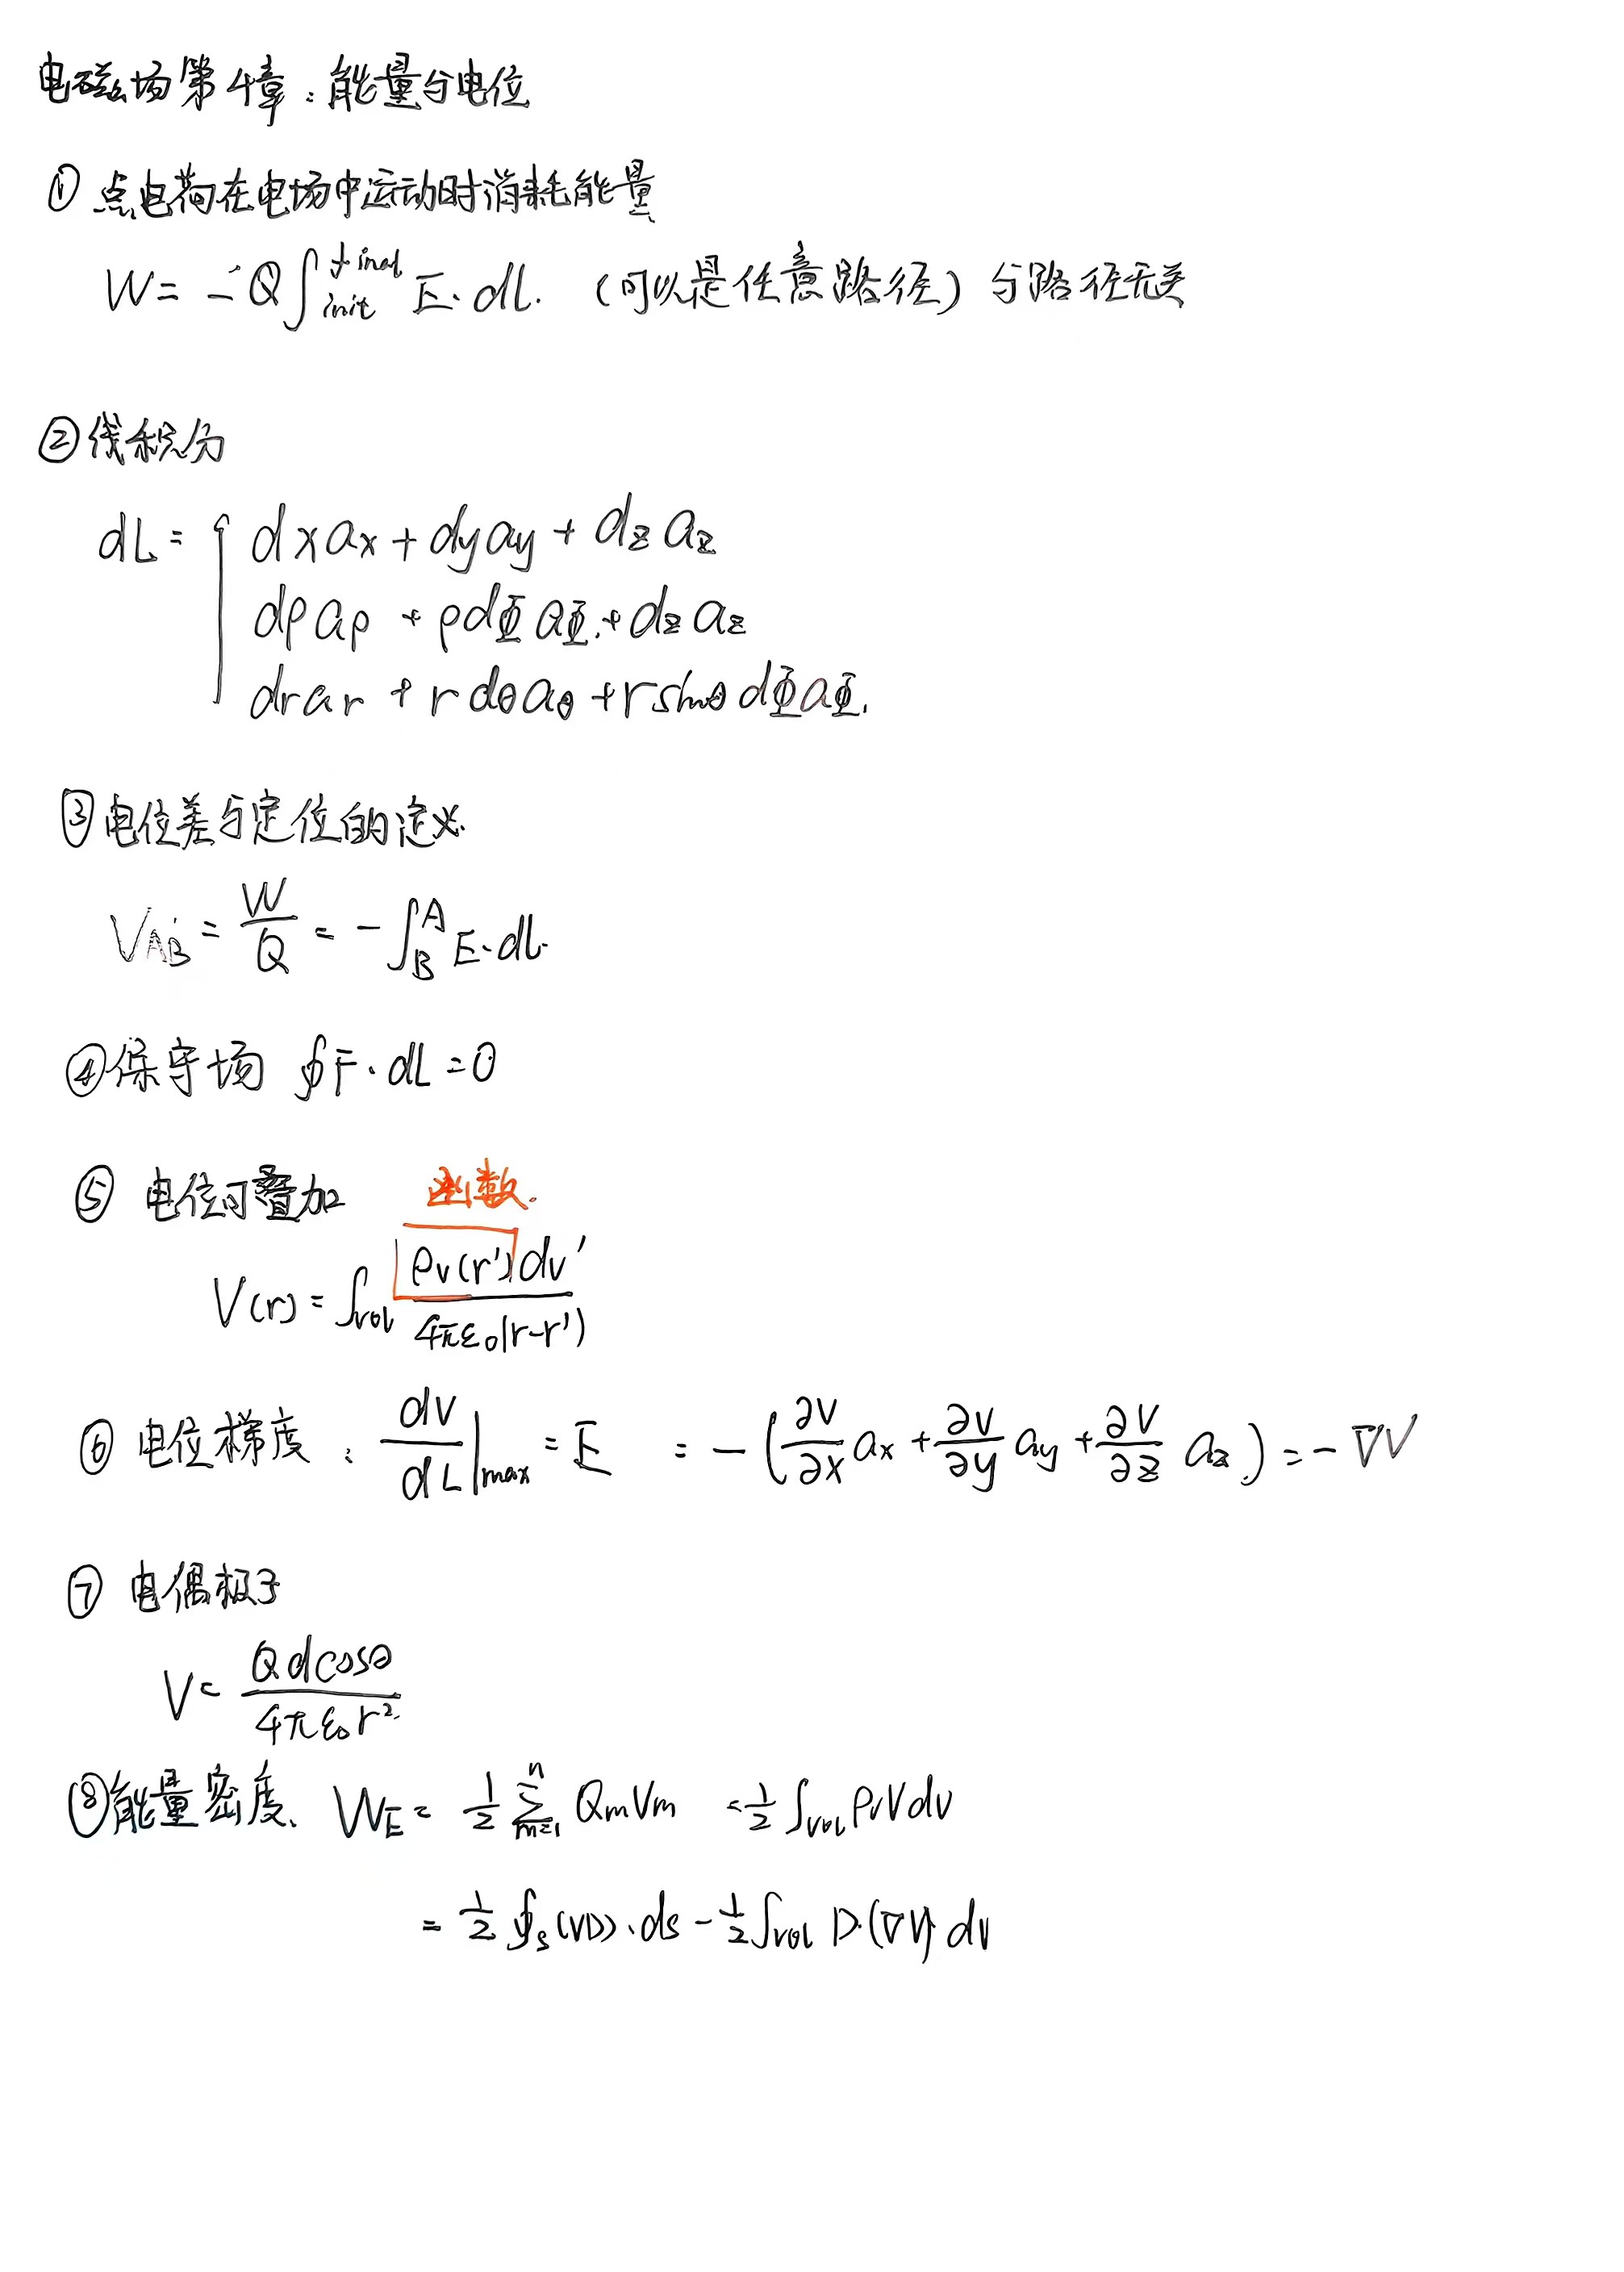 电磁场第4章：能量与电位
① 点电荷在电场中运动时消耗能量
W = -Q∫_init^final E·dL. （可以是任意路径）与路径无关
② 线积分
dL = { dx ax + dy ay + dz az
dρ aρ + ρdΦ aΦ + dz az
dr ar + r dθ aθ + r sinθ dΦ aΦ.
③ 电位差与定位的定义
V_AB = W/Q = -∫_B^A E·dL.
④ 保守场 ∮F·dL = 0
⑤ 电位可叠加 函数.
V(r) = ∫_vol ρv(r')dv' / 4πε0|r-r'|
⑥ 电位梯度： dV/dL|max = E = -(∂V/∂x ax + ∂V/∂y ay + ∂V/∂z az) = -∇V
⑦ 电偶极子
V = Qdcosθ / 4πε0r²
⑧ 能量密度、 W_E = 1/2 Σ_{m=1}^n QmVm = 1/2 ∫_vol ρvVdv
= 1/2 ∮_s (VD)·ds - 1/2 ∫_vol D·(∇V) dv